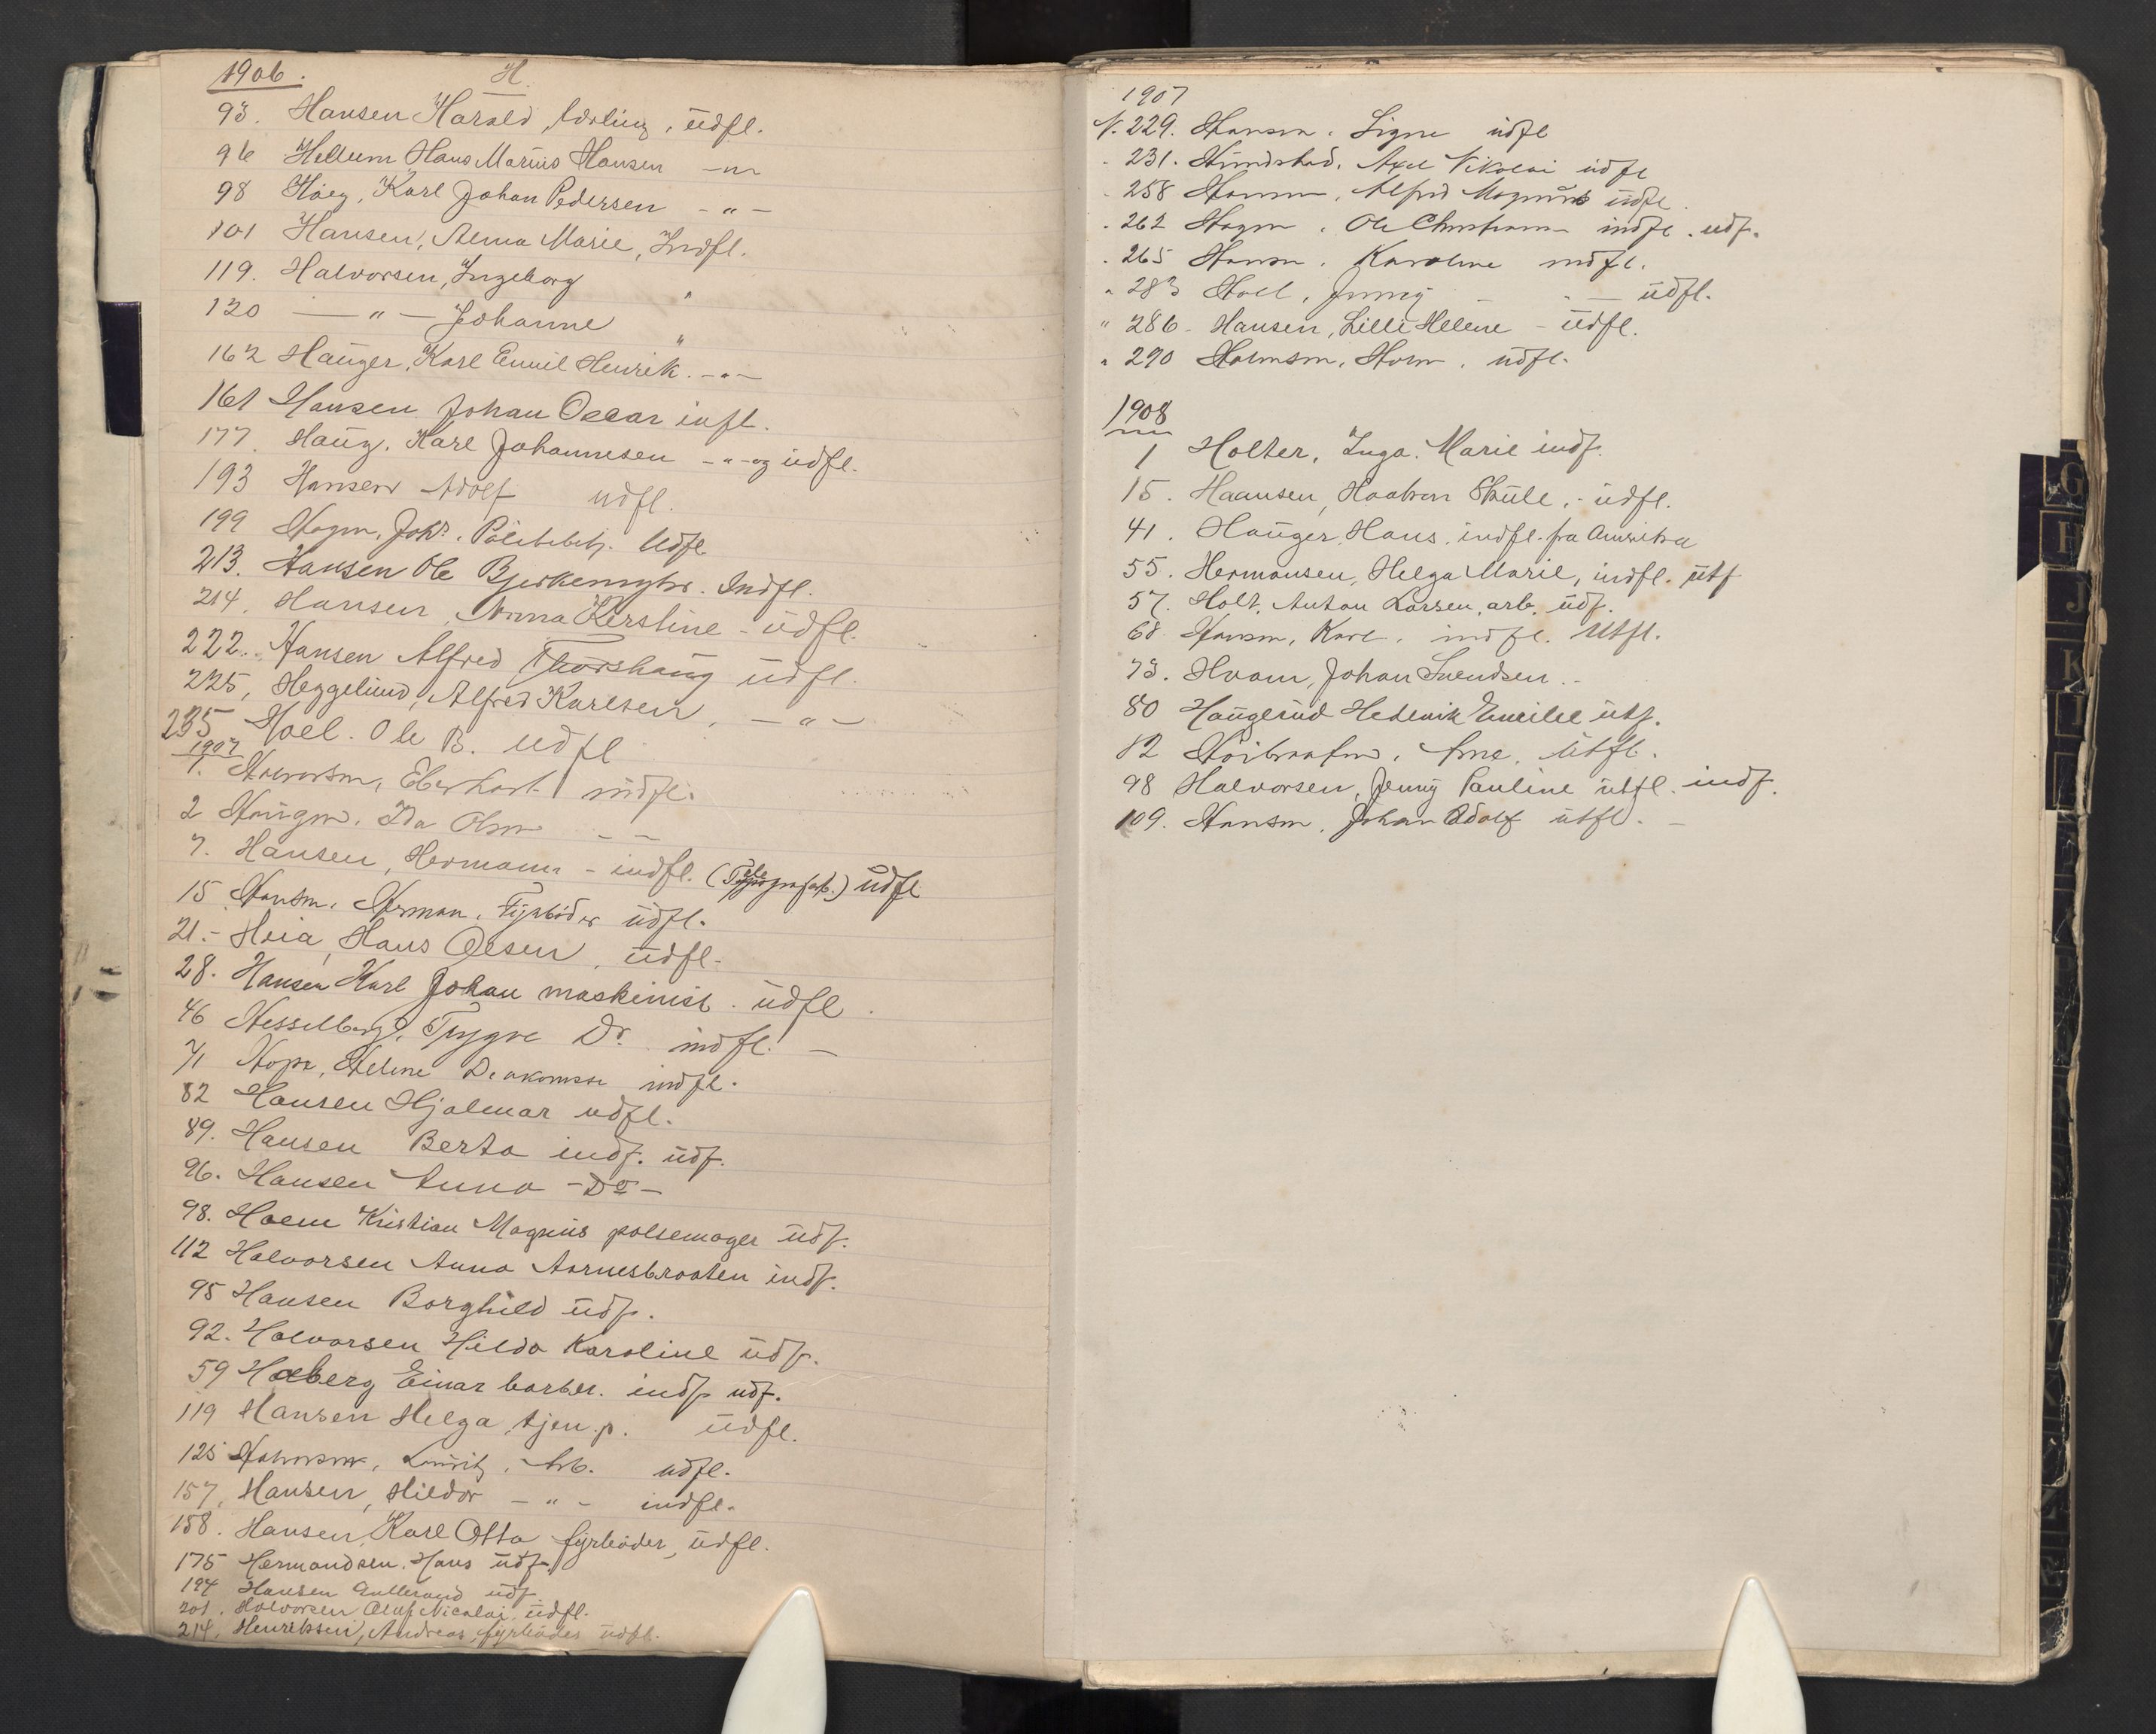 1906. H.
93. Hansen Harald, Erling, üdfl.
96 Hellum, Hans Marius Hansen -"-
98 Høeg, Karl Johan Pedersen - " -
101 Hansen, Anna Marie, Indfl.
119. Halvorsen, Ingeborg "
120 — " — Johanne "
162 Hauger, Karl Emil Henrik. - " -
161 Hansen Johan Oscar infl.
177. Haug. Karl Johannesen - " - og üdfl.
193 Hansen Adolf udfl.
199 Hagen, Johs. Politibetj. Udfl.
213. Hansen Ole Bjerkemyhr. Indfl.
214. Hansen, Anna Kerstine - üdfl.
222. Hansen Alfred Thorshaug üdfl.
225, Heggelund, Alfred Karlsen, - " -
235 Hoel. Ole B. udfl
1907
1. Halvorsen, Eberhart indfl.
2 Haugen, Ida Olsen - -
7. Hansen, Hermann - indfl. üdfl
15 Hansen, Herman, Fyrbøder üdfl.
21. - Hoia, Hans Olsen, üdfl.
28. Hansen Karl Johan maskinist. üdfl.
46 Hesselberg, Trygve Dr. indfl. -
71 Hope, Helene Diakonisse indfl.
82 Hansen Hjalmar udfl.
89. Hansen Berta indf. üdf.
96. Hansen Anna - Do -
98. Holm Kristian Magnus pølsemager üdf.
112 Halvorsen Anna Aarnesbraaten indf.
95 Hansen Borghild üdf.
92. Halvorsen Hilda Karoline üdf.
59 Hoberg Einar barber. indf udf.
119 Hansen Helga, tjen.p. üdfl.
125 Halvorsen, Lauritz, Arb. udfl.
157, Hansen, Hildor - " - indfl.
158. Hansen, Karl Otto fyrbøder, üdfl.
175 Hermandsen. Hans üdf.
194 Hansen Gulleraud üdf.
201. Halvorsen Oluf Nicolai. üdfl.
214, Henriksen, Andreas, fyrbøder üdfl.
1907
N. 229. Hansen, Signe üdfl
- 231. Hundstad, Axel Nikolai üdfl
- 258 Hansen, Alfred Magnus üdfl.
- 262 Hagen, Ole Christiansen indfl. udf.
- 265 Hansen, Karoline indfl.
" 283 Hoel, Jenny - " - üdfl.
" 286 - Hansen, Lilli Helene - üdfl.
" 290 Holmsen, Holm, üdfl.
1908
1 Holter, Inga. Marie indf.
15. Haansen, Haakon Skule, - üdfl.
41. Hauger, Hans, indfl. fra Amerika
55. Hermansen, Helga Marie, indfl. ütf
57. Holt, Anton Larsen, arb. üdf.
68 Hansen, Karl. indfl. Utfl.
73. Hvam, Johan Svendsen. -
80 Haugerud Hedevik Emilie ütf.
82 Høibraaten, Arne, ütfl.
98 Halvorsen, Jenny Pauline ütfl. indf.
109. Hansen, Johan Adolf ütfl. -
G
H
J
K